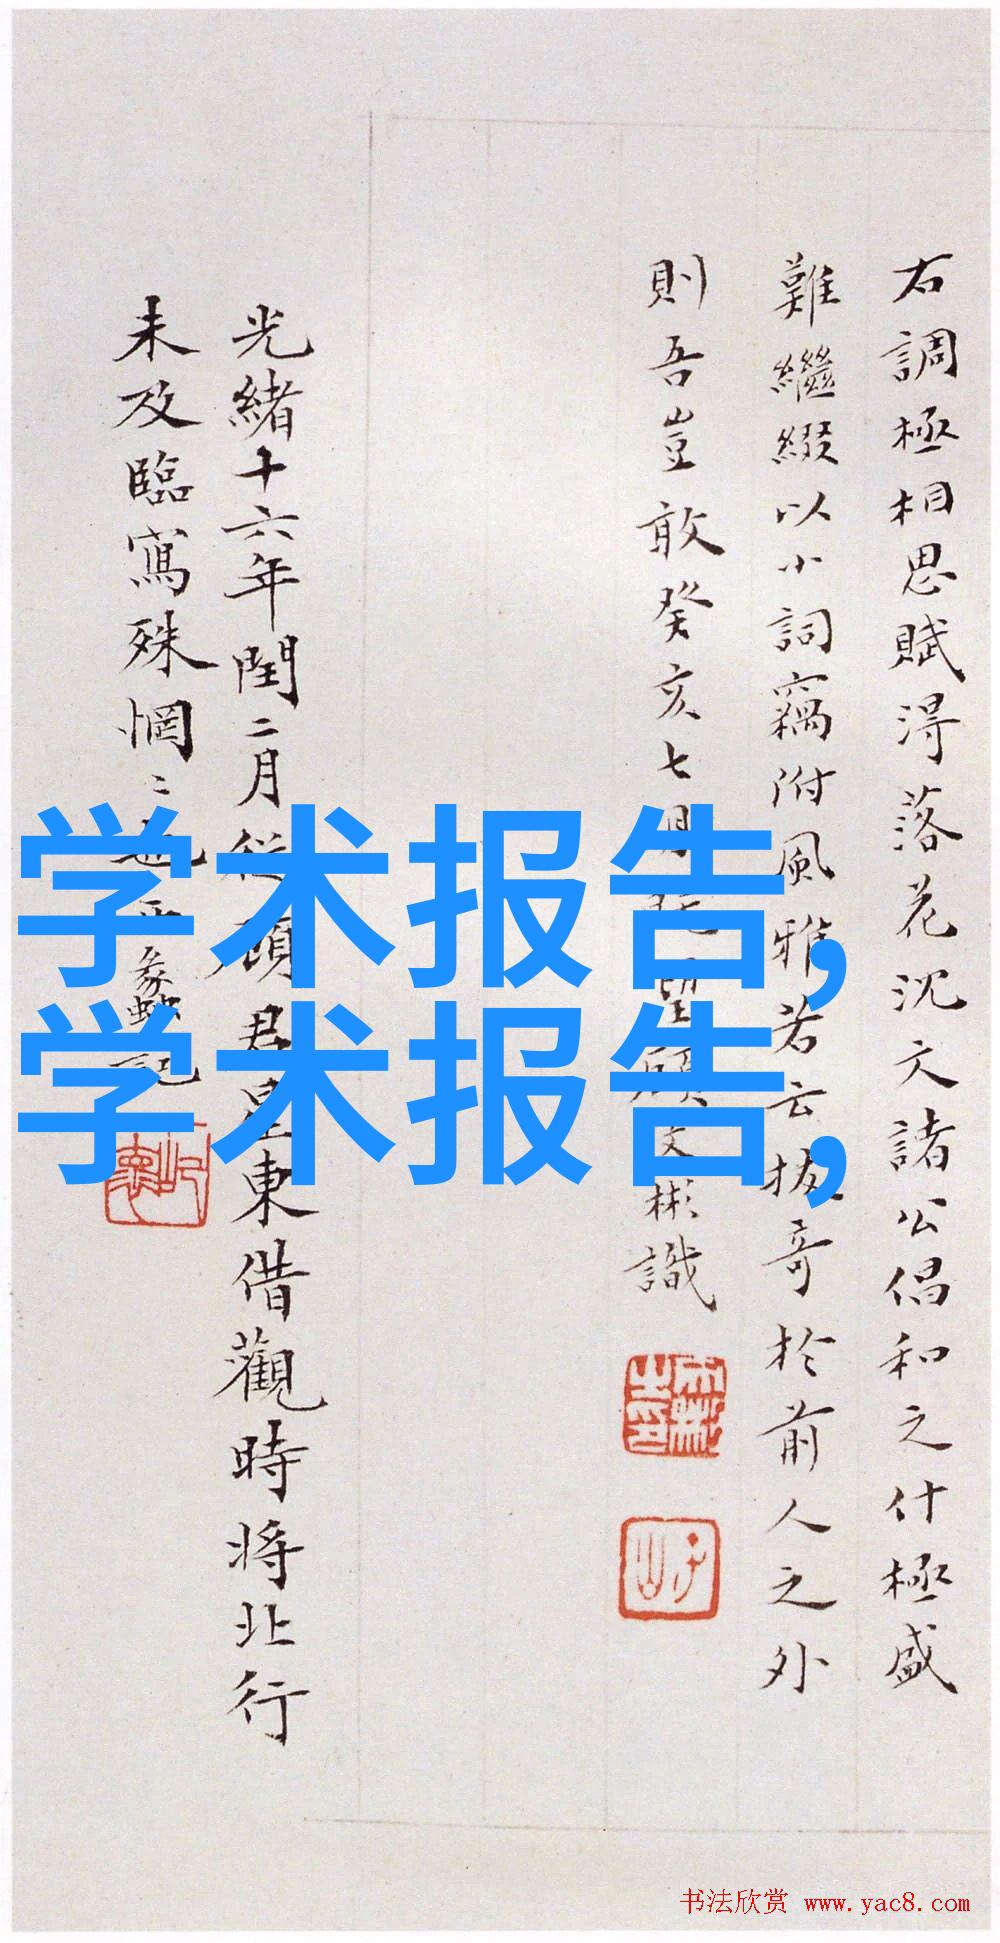 右調極相思賦得落花沈文諸公倡和之什極盛
難繼綴以小詞竊附風雅若云抜奇於前人之外
則吾豈敢癸亥七月望顧文彬識
光緒十六年閏二月從顧君星東借觀時將北行
未及臨寫殊惘〻也記
学术报告,
学术报告,
书法欣赏 www.yac8.com